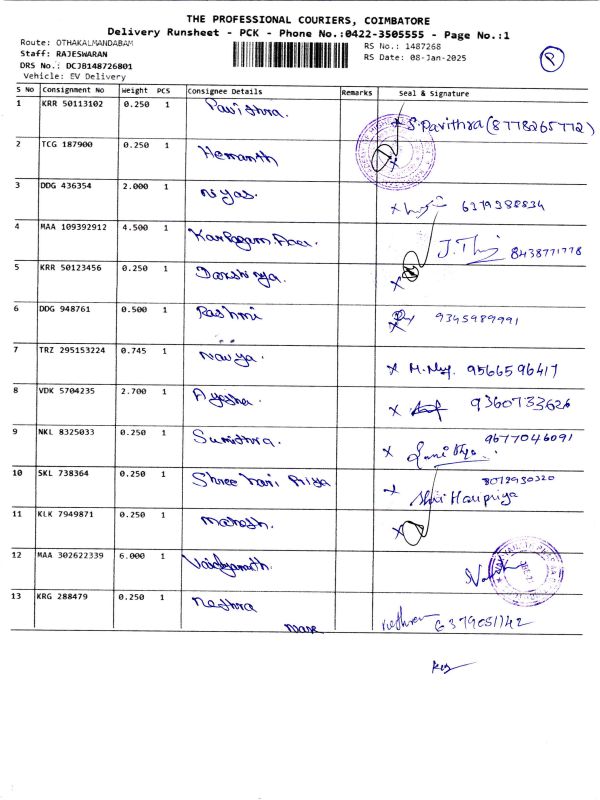 THE PROFESSIONAL COURIERS, COIMBATORE
Delivery Runsheet - PCK - Phone No.:0422-3505555 - Page No.:1
Route: OTHAKALMANDABAM
RS No.: 1487268
Staff: RAJESWARAN
RS Date: 08-Jan-2025
DRS No.: DCJB148726801
Vehicle: EV Delivery
P
S No Consignment No Weight PCS Consignee Details Remarks Seal & Signature
1 KRR 50113102 0.250 1 Pavithra. x S. Pavithra (8778265772)
2 TCG 187900 0.250 1 Hemanth x
3 DDG 436354 2.000 1 Niyas. x 6379388834
4 MAA 109392912 4.500 1 J. 8438771778
5 KRR 50123456 0.250 1 x
6 DDG 948761 0.500 1 Rashmi x 9345989991
7 TRZ 295153224 0.745 1 Navya. x 9566596417
8 VDK 5704235 2.700 1 Ayesha. x 9360733626
9 NKL 8325033 0.250 1 Sumithra. x 9677046091
10 SKL 738364 0.250 1 Shree hari Priya x 8072930320
Shri Haripriya
11 KLK 7949871 0.250 1 x
12 MAA 302622339 6.000 1
13 KRG 288479 0.250 1 Nethra 6379051142